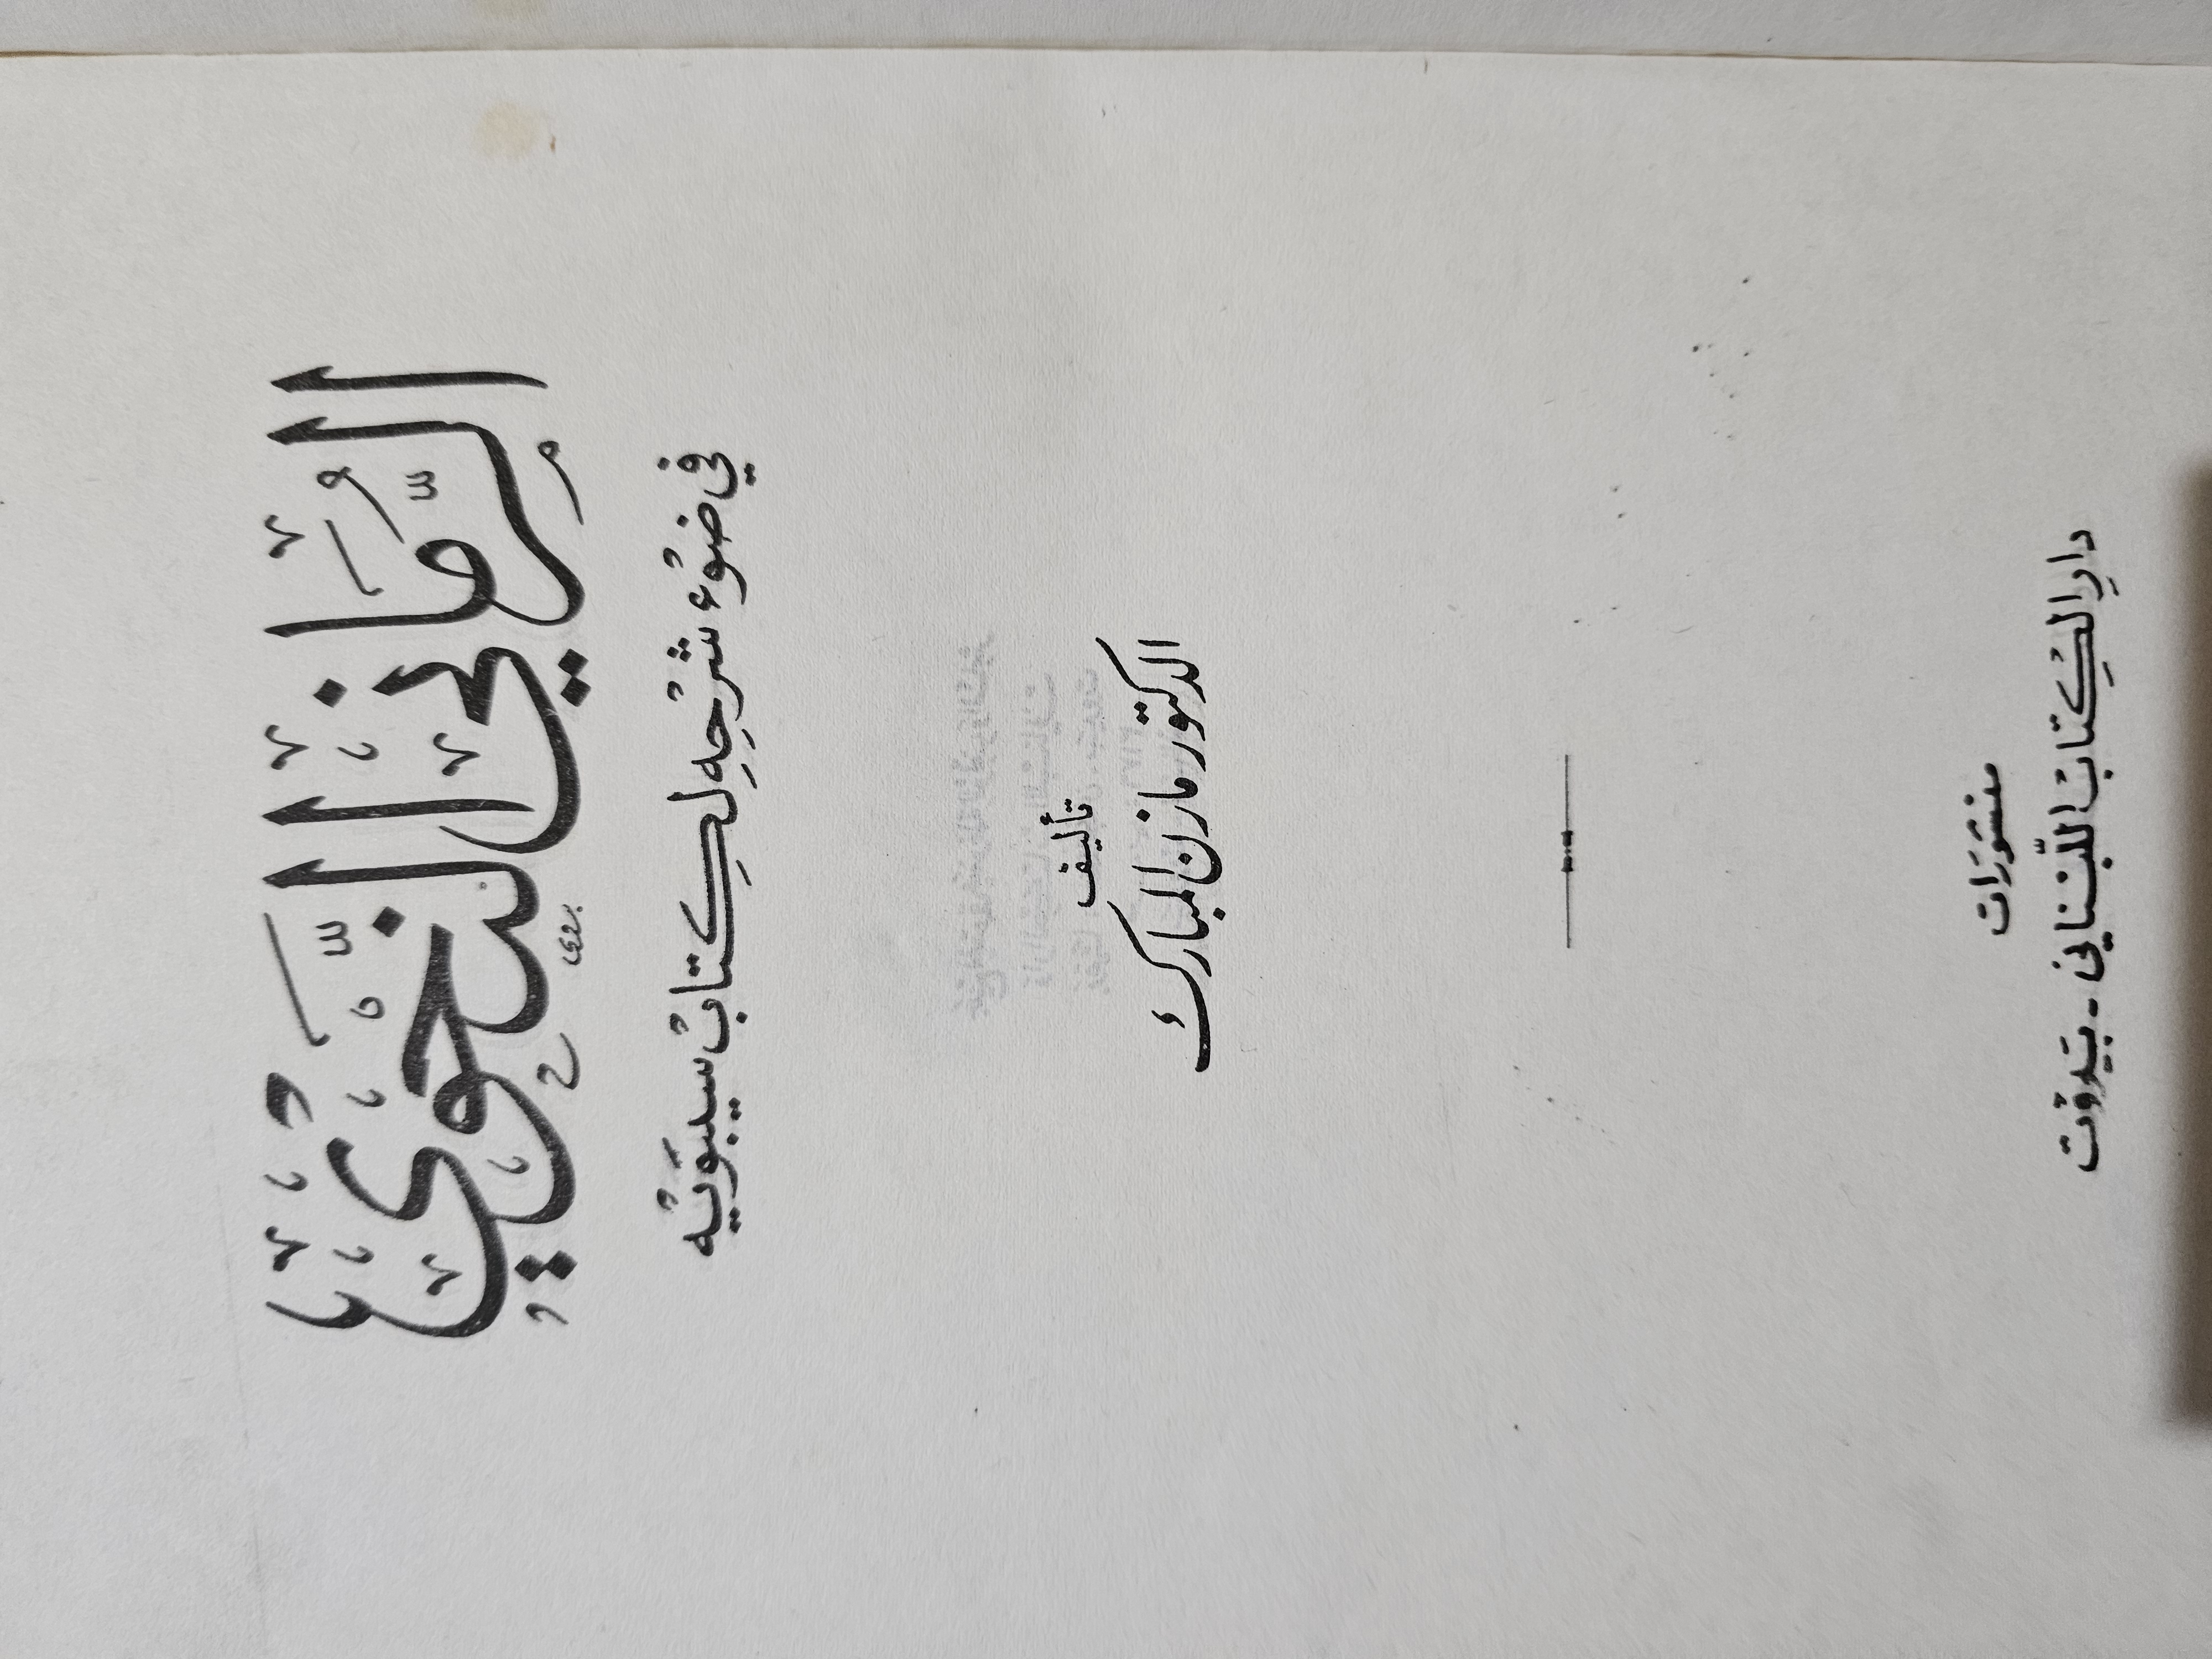 الرُّمَّاني النَّحوي
في ضوء شرحه لكتاب سيبويه
تأليف
الدكتور مازن المبارك
منشورات
دار الكتاب اللبناني - بيروت